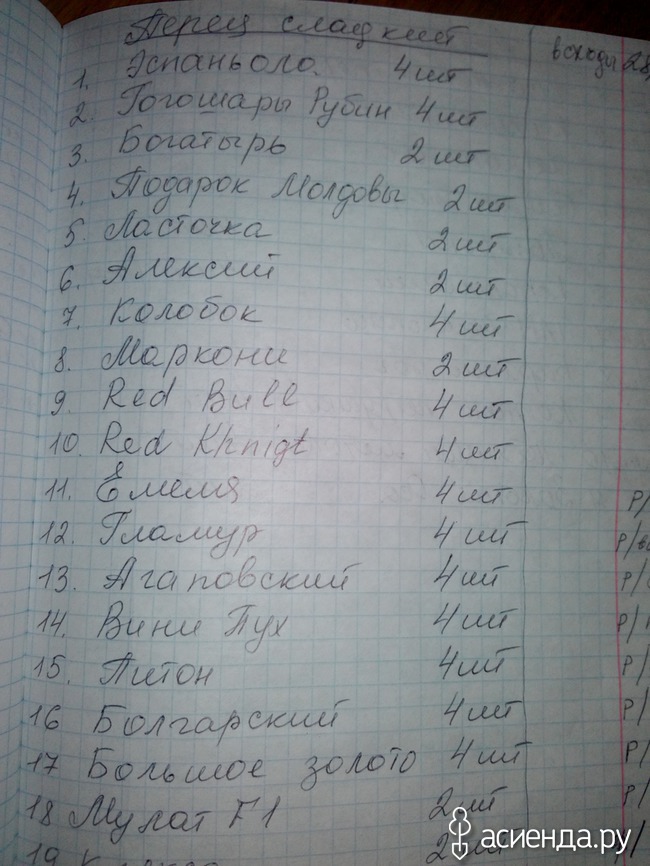 Перец сладкий
всходы 28
1. Эспаньоло. 4 шт
2. Гогошары Рубин 4 шт
3. Богатырь 2 шт
4. Подарок Молдовы 2 шт
5. Ласточка 2 шт
6. Алексий 2 шт
7. Колобок 4 шт
8. Маркони 2 шт
9. Red Bull 4 шт
10. Red Khnigt 4 шт
11. Емеля 4 шт
12. Гламур 4 шт
13. Агаповский 4 шт
14. Вини Пух 4 шт
15. Питон 4 шт
16 Болгарский 4 шт
17 Большое золото 4 шт
18 Мулат F1 2 шт
19 2 шт
асиенда.ру